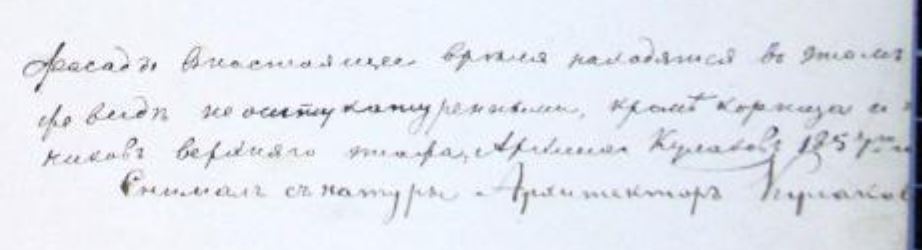 Фасадъ внастоящее время находятся въ этомъ
же видѣ неоштукатуренными, кромѣ карниза и
никовъ верхняго этажа, Кулаковъ 1857
Снималъ съ натуры Архитекторъ Кулаков